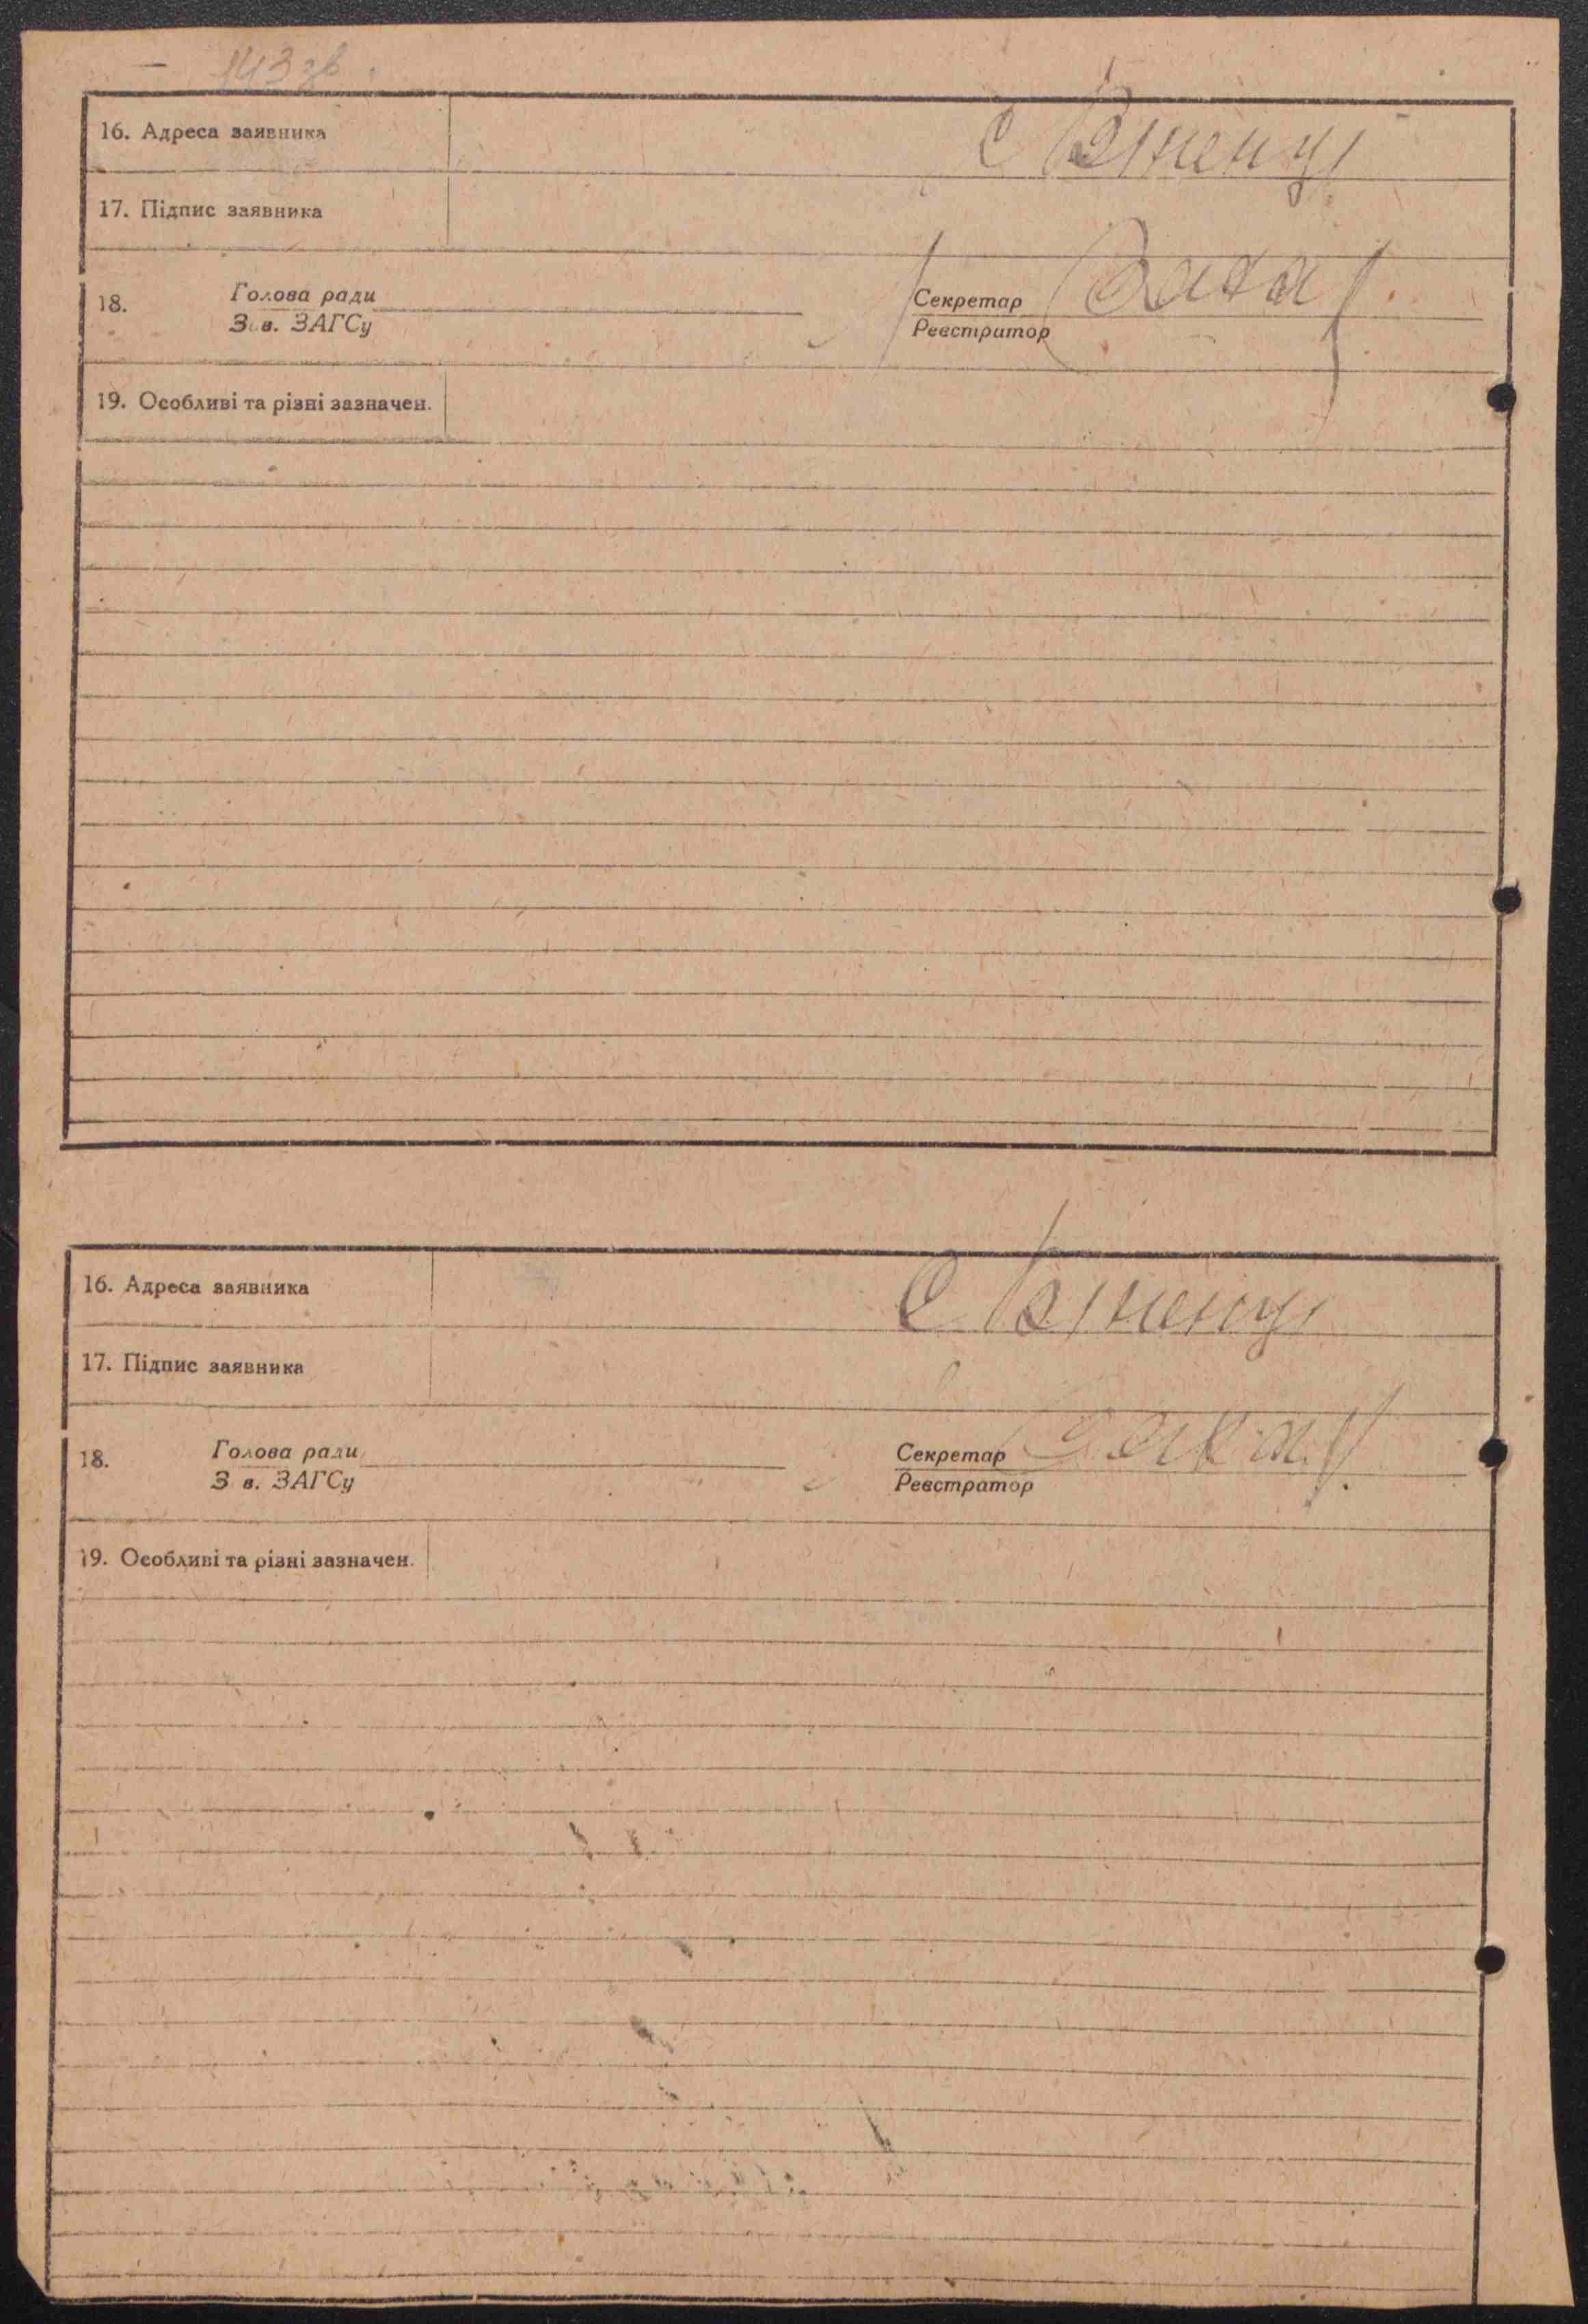 143 зв.
16. Адреса заявника
17. Підпис заявника
18. Голова ради Секретар
Зав. ЗАГСу Реєстратор
19. Особливі та різні зазначен.
16. Адреса заявника
17. Підпис заявника
18. Голова ради Секретар
З в. ЗАГСу Реєстратор
19. Особливі та різні зазначен.